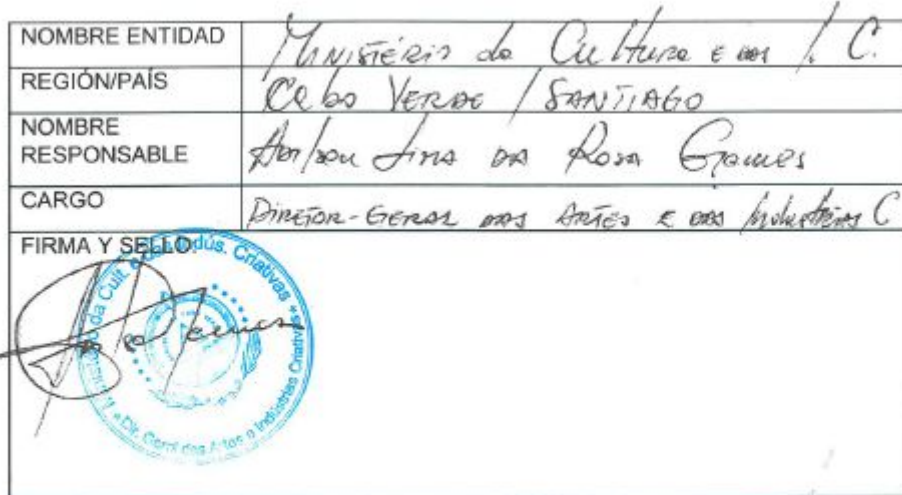 NOMBRE ENTIDAD Ministério da Cultura e das I. C.
REGIÓN/PAÍS Cabo Verde / SANTIAGO
NOMBRE
RESPONSABLE Lima da Rosa Gomes
CARGO DIRETOR-GERAL DAS ARTES E DAS Indústrias C
FIRMA Y SELLO:
da Cult. e das Indús. Criativas
Dir. Geral das Artes e Indústrias Criativas